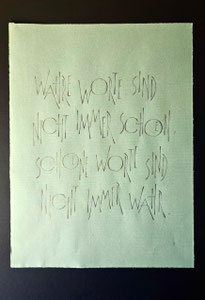 WAHRE WORTE SIND
NICHT IMMER SCHÖN.
SCHÖNE WORTE SIND
NICHT IMMER WAHR.